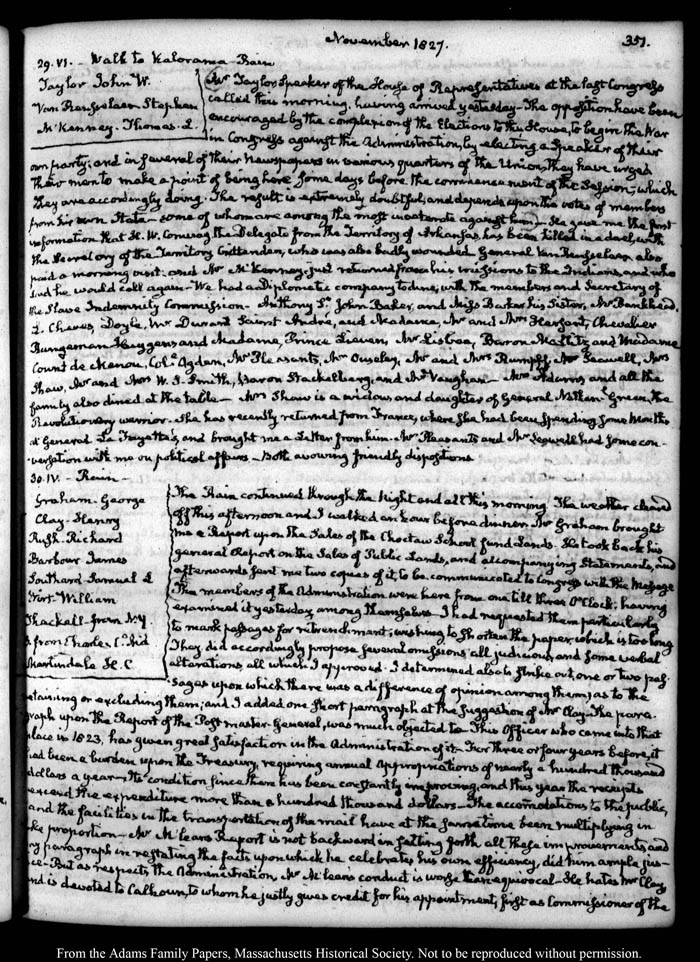 November 1827.
357.
29. VI. - Walk to Kalorama - Rain
Taylor John W.
Van Rensselaer Stephen
McKenney. Thomas. L.
Mr Taylor, Speaker of the House of Representatives at the last Congress
called this morning, having arrived yesterday - The opposition have been
encouraged by the complexion of the Elections to this House, to begin the War
in Congress against the Administration, by electing a Speaker of their
own party; and in several of their Newspapers in various quarters of the Union, they have urged
their men to make a point of being here some days before the commencement of the Session; which
they are accordingly doing. The result is extremely doubtful; and depends upon the votes of members
from his own State - some of whom are among the most inveterate against him - He gave me the first
information that H. W. Conway the Delegate from the Territory of Arkansas has been killed in a duel, with
the Secretary of the Territory Crittenden, who was also badly wounded. General Van Rensselaer also
paid a morning visit: and Mr McKenney, just returned from his missions to the Indians, and who
said he would call again - We had a Diplomatic company to dine, with the members and Secretary of
the Slave Indemnity Commission. Anthony St. John Baker, and Miss Barker his Sister, Mr Bankhead,
L. Cheves, Doyle, Mr Durant Saint André, and Madame, Mr and Mrs Hersant, Chevalier
Bangeman Huygens and Madame, Prince Lieven, Mr Lisboa, Baron Maltitz and Madame
Count de Menou, Coll. Ogden, Mr Pleasants, Mr Ouseley, Mr and Mrs Rumpff, Mr Seawell, Mrs
Shaw, Mr and Mrs W. S. Smith, Baron Stackelberg, and Mr Vaughan - Mrs Adams and all the
family also dined at the table - Mrs Shaw is a widow, and daughter of General Nathan. Green, the
Revolutionary warrior. She has recently returned from France, where she had been spending some Months
at General La Fayette's, and brought me a Letter from him. Mr Pleasants and Mr Seawell had some con-
versation with me on political affairs - Both avowing friendly dispositions
30. IV. - Rain -
Graham - George
Clay - Henry
Rush. Richard
Barbour James
Southard Samuel L
Wirt. William
Thackall. from N.Y.
from Charles Co. Md
Martindale H. C.
The Rain continued through the Night and all this morning. The weather cleared
off this afternoon and I walked an hour before dinner. Mr Graham brought
me a Report upon the Sales of the Choctaw School fund Lands. He took back his
general Report on the Sales of Public Lands, and accompanying Statements, and
afterwards sent me two copies of it, to be communicated to Congress with the Message
The members of the Administration were here from one till three O'Clock; having
examined it yesterday, among themselves. I had requested them particularly
to mark passages for retrenchment; wishing to shorten the paper, which is too long
They did accordingly propose several omissions, all judicious, and some verbal
alterations, all which I approved. I determined also to strike out, one or two pas-
sages upon which there was a difference of opinion among them, as to the
retaining or excluding them; and I added one short paragraph at the suggestion of Mr Clay. The para-
graph upon the Report of the Post master General, was much objected to. This Officer who came into that
place in 1823, has given great satisfaction in the Administration of it - For three or four years before, it
had been a burden upon the Treasury, requiring annual Appropriations of nearly a hundred thousand
dollars a year - Its condition since then has been constantly improving, and this year the receipts
exceed the expenditure more than a hundred thousand dollars - The accomodations to the public,
and the facilities in the transportation of the mail have at the same time been multiplying in
like proportion - Mr McLean's Report is not backward in setting forth all these improvements and
my paragraph in restating the facts upon which he celebrates his own efficiency, did him ample jus-
tice - But as respects the Administration, Mr McLean's conduct is worse than equivocal - He hates Mr Clay
and is devoted to Calhoun, to whom he justly gives credit for his appointment, first as Commissioner of the
From the Adams Family Papers, Massachusetts Historical Society. Not to be reproduced without permission.